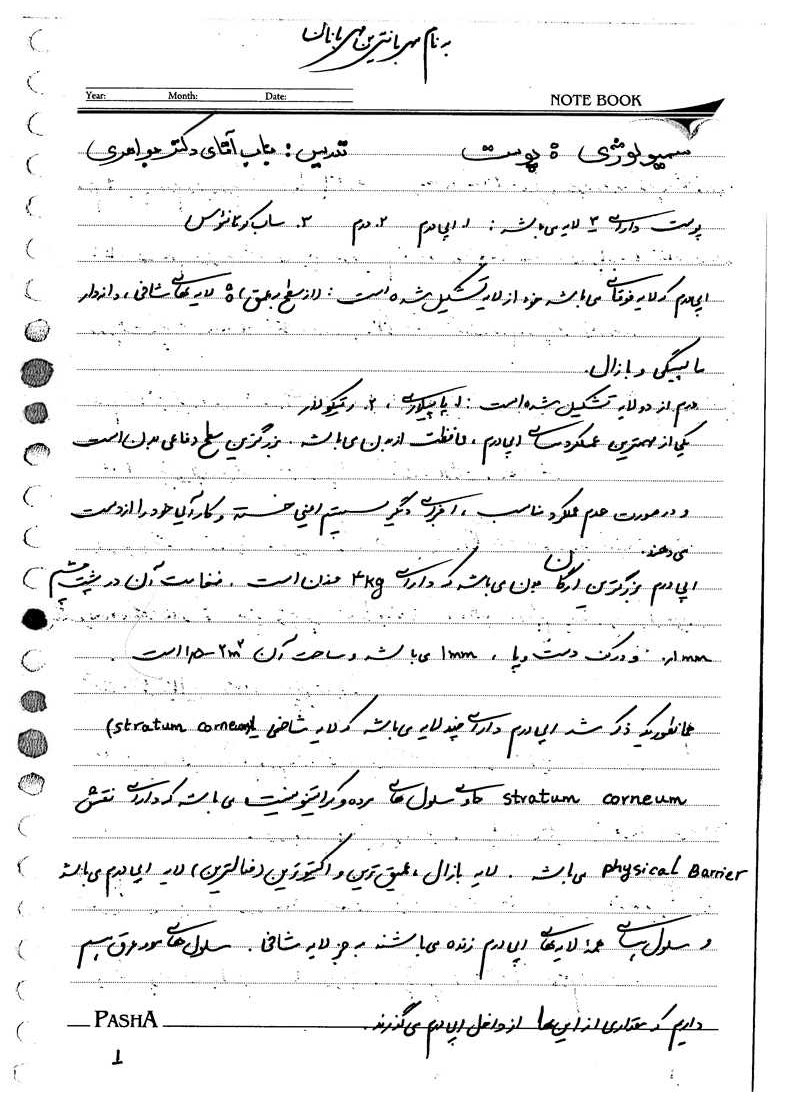 به نام مهربانترین مهربانان
Year: Month: Date:
NOTE BOOK
سمیولوژی پوست تدریس: جناب آقای دکتر جواهری
پوست دارای ۳ لایه می باشد: ۱. اپی درم ۲. درم ۳. ساب کوتانئوس
اپی درم که لایه فوقانی می باشد خود از لایه تشکیل شده است: (از سطح به عمق) لایه های شاخی، دانه دار
و بازال.
درم از دو لایه تشکیل شده است: ۱. پاپیلاری، ۲. رتیکولار
یکی از مهمترین عملکردهای اپی درم، حافظت از بدن می باشد. بزرگترین سطح دفاعی بدن است
و در صورت عدم عملکرد مناسب، دیگر سیستم ایمنی خسته و کارآیی خود را از دست
می دهند.
اپی درم بزرگترین ارگان بدن می باشد که دارای 4kg وزن است. ضخامت آن در پشت چشم
mm و در کف دست و پا، 1mm می باشد و مساحت آن ۱/۵-۲m² است.
همانطوریکه ذکر شد اپی درم دارای چند لایه می باشد که لایه شاخی یا (stratum corneum)
stratum corneum حاوی سلول های مرده و کراتینوسیت می باشد که دارای نقش
physical Barrier می باشد. لایه بازال، عمیق ترین و اکتیوترین (فعالترین) لایه اپی درم می باشد
و سلول های همۀ لایه های اپی درم زنده می باشند به جز لایه شاخی. سلول های
داریم که مقداری از این ها از داخل اپی درم می گذرند.
PASHA
1